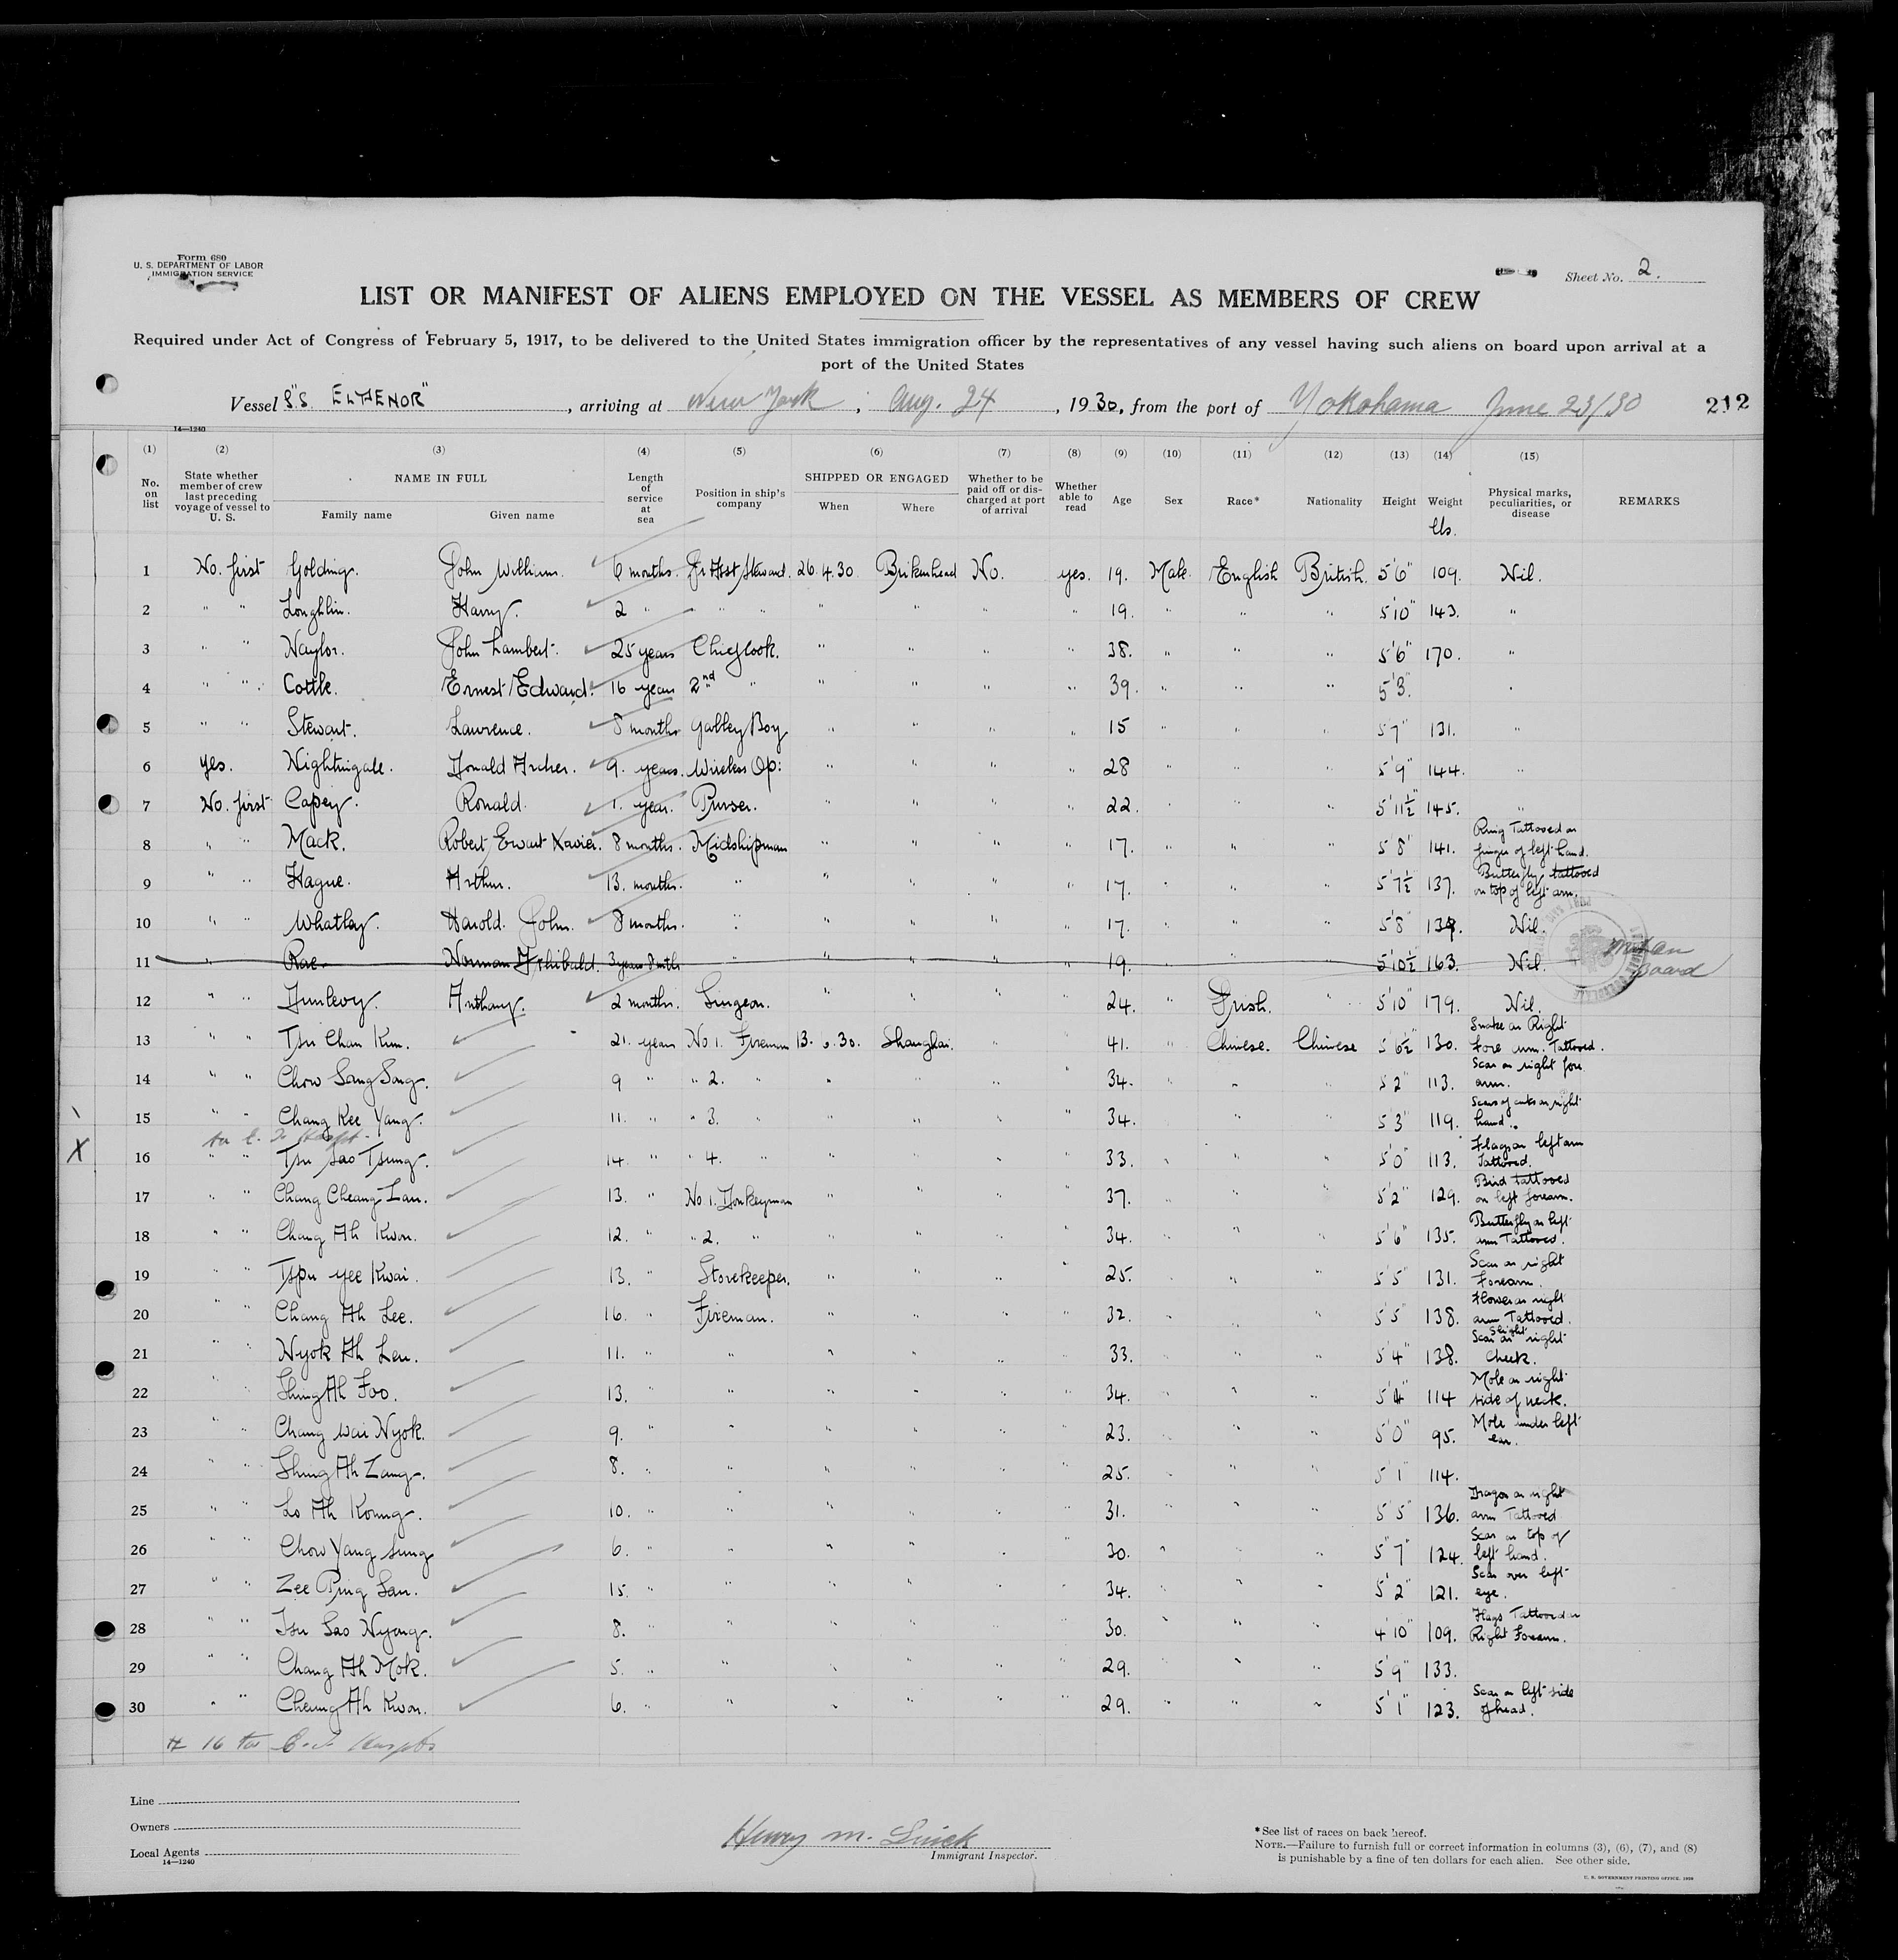 Form 680
U. S. DEPARTMENT OF LABOR
IMMIGRATION SERVICE
Sheet No. 2.
LIST OR MANIFEST OF ALIENS EMPLOYED ON THE VESSEL AS MEMBERS OF CREW
Required under Act of Congress of February 5, 1917, to be delivered to the United States immigration officer by the representatives of any vessel having such aliens on board upon arrival at a
port of the United States
Vessel S.S. "ELPENOR", arriving at New York, Aug. 24, 1930, from the port of Yokohama June 23/30 212
14—1240
(1) (2) (3) (4) (5) (6) (7) (8) (9) (10) (11) (12) (13) (14) (15)
No. on list State whether member of crew last preceding voyage of vessel to U. S. NAME IN FULL Family name Given name Length of service at sea Position in ship's company SHIPPED OR ENGAGED When Where Whether to be paid off or discharged at port of arrival Whether able to read Age Sex Race* Nationality Height Weight lbs. Physical marks, peculiarities, or disease REMARKS
1 No. first Golding. John William. 6 months. Jr Asst Steward. 26.4.30. Birkenhead No. yes. 19. Male English British. 5'6" 109. Nil.
2 " " Loughlin. Harry. 2 " " " " " " " 19. " " " 5'10" 143. "
3 " " Naylor. John Lambert. 25 years Chief Cook. " " " " 38. " " " 5'6" 170. "
4 " " Cottle. Ernest Edward. 16 years 2nd " " " " " 39. " " " 5'3" "
5 " " Stewart. Lawrence. 8 months Galley Boy " " " " 15 " " " 5'7" 131. "
6 yes. Nightingale. Donald Archer. 9. years. Wireless Op: " " " " 28 " " " 5'9" 144. "
7 No. first Capey. Ronald. 1. year. Purser. " " " " 22. " " " 5'11½" 145. "
8 " " Mack. Robert Ewart Xavier. 8 months. Midshipman " " " " 17. " " " 5'8" 141. Ring Tattooed on finger of left hand.
9 " " Hague. Arthur. 13. months. " " " " " 17. " " " 5'7½" 137. Butterfly tattooed on top of left arm.
10 " " Whatley. Harold John. 8 months. " " " " " 17. " " " 5'8" 139. Nil.
11 " Rae. Norman Archibald. 3 years 8 mths " " " " " 19. " " " 5'10½" 163. Nil. Not on Board
12 " " Dunlevy. Anthony. 2 months. Surgeon. " " " " 24. " Irish. " 5'10" 179. Nil.
13 " " Tsu Chan Kum. 21. years No 1. Fireman 13. 6. 30. Shanghai. " " 41. " Chinese. Chinese 5'6½" 130. Snake on Right Fore arm. Tattooed.
14 " " Chow Sang Song. 9 " " 2. " " " " " 34. " " " 5'2" 113. Scar on right fore arm.
15 " " Chang Kee Yang. 11. " " 3. " " " " " 34. " " " 5'3" 119. Scars of cuts on right hand.
X 16 " " Tsu Sao Tsung. 14. " " 4. " " " " " 33. " " " 5'0" 113. Flags on left arm Tattooed.
17 " " Chang Cheang Lan. 13. " No 1. Donkeyman " " " " 37. " " " 5'2" 129. Bird tattooed on left forearm.
18 " " Chang Ah Kwon. 12. " " 2. " " " " " 34. " " " 5'6" 135. Butterfly on left arm Tattooed.
19 " " yee Kwai. 13. " Storekeeper. " " " " 25. " " " 5'5" 131. Scar on right Forearm.
20 " " Chang Ah Lee. 16. " Fireman. " " " " 32. " " " 5'5" 138. Flower on right arm Tattooed.
21 " " Nyok Ah Leu. 11. " " " " " " 33. " " " 5'4" 138. Slight Scar on right Cheek.
22 " " Shing Ah Foo. 13. " " " " " " 34. " " " 5'4" 114 Mole on right side of neck.
23 " " Chang Wai Nyok. 9. " " " " " " 23. " " " 5'0" 95. Mole under left ear.
24 " " Shing Ah Zang. 8. " " " " " " 25. " " " 5'1" 114.
25 " " Lo Ah Koung. 10. " " " " " " 31. " " " 5'5" 136. Dragon on right arm Tattooed
26 " " Chow Yang Sung 6. " " " " " " 30. " " " 5'7" 124. Scar on top of left hand.
27 " " Zee Ping San. 15. " " " " " " 34. " " " 5'2" 121. Scar over left eye.
28 " " Tsu Sao Nyong. 8. " " " " " " 30. " " " 4'10" 109. Flags Tattooed on Right Forearm.
29 " " Chang Ah Mok. 5. " " " " " " 29. " " " 5'9" 133.
30 " " Cheung Ah Kwon. 6. " " " " " " 29. " " " 5'1" 123. Scar on left side of head.
# 16
Line
Owners
Local Agents
14—1240
Henry M.
Immigrant Inspector.
*See list of races on back hereof.
NOTE.—Failure to furnish full or correct information in columns (3), (6), (7), and (8)
is punishable by a fine of ten dollars for each alien. See other side.
U. S. GOVERNMENT PRINTING OFFICE: